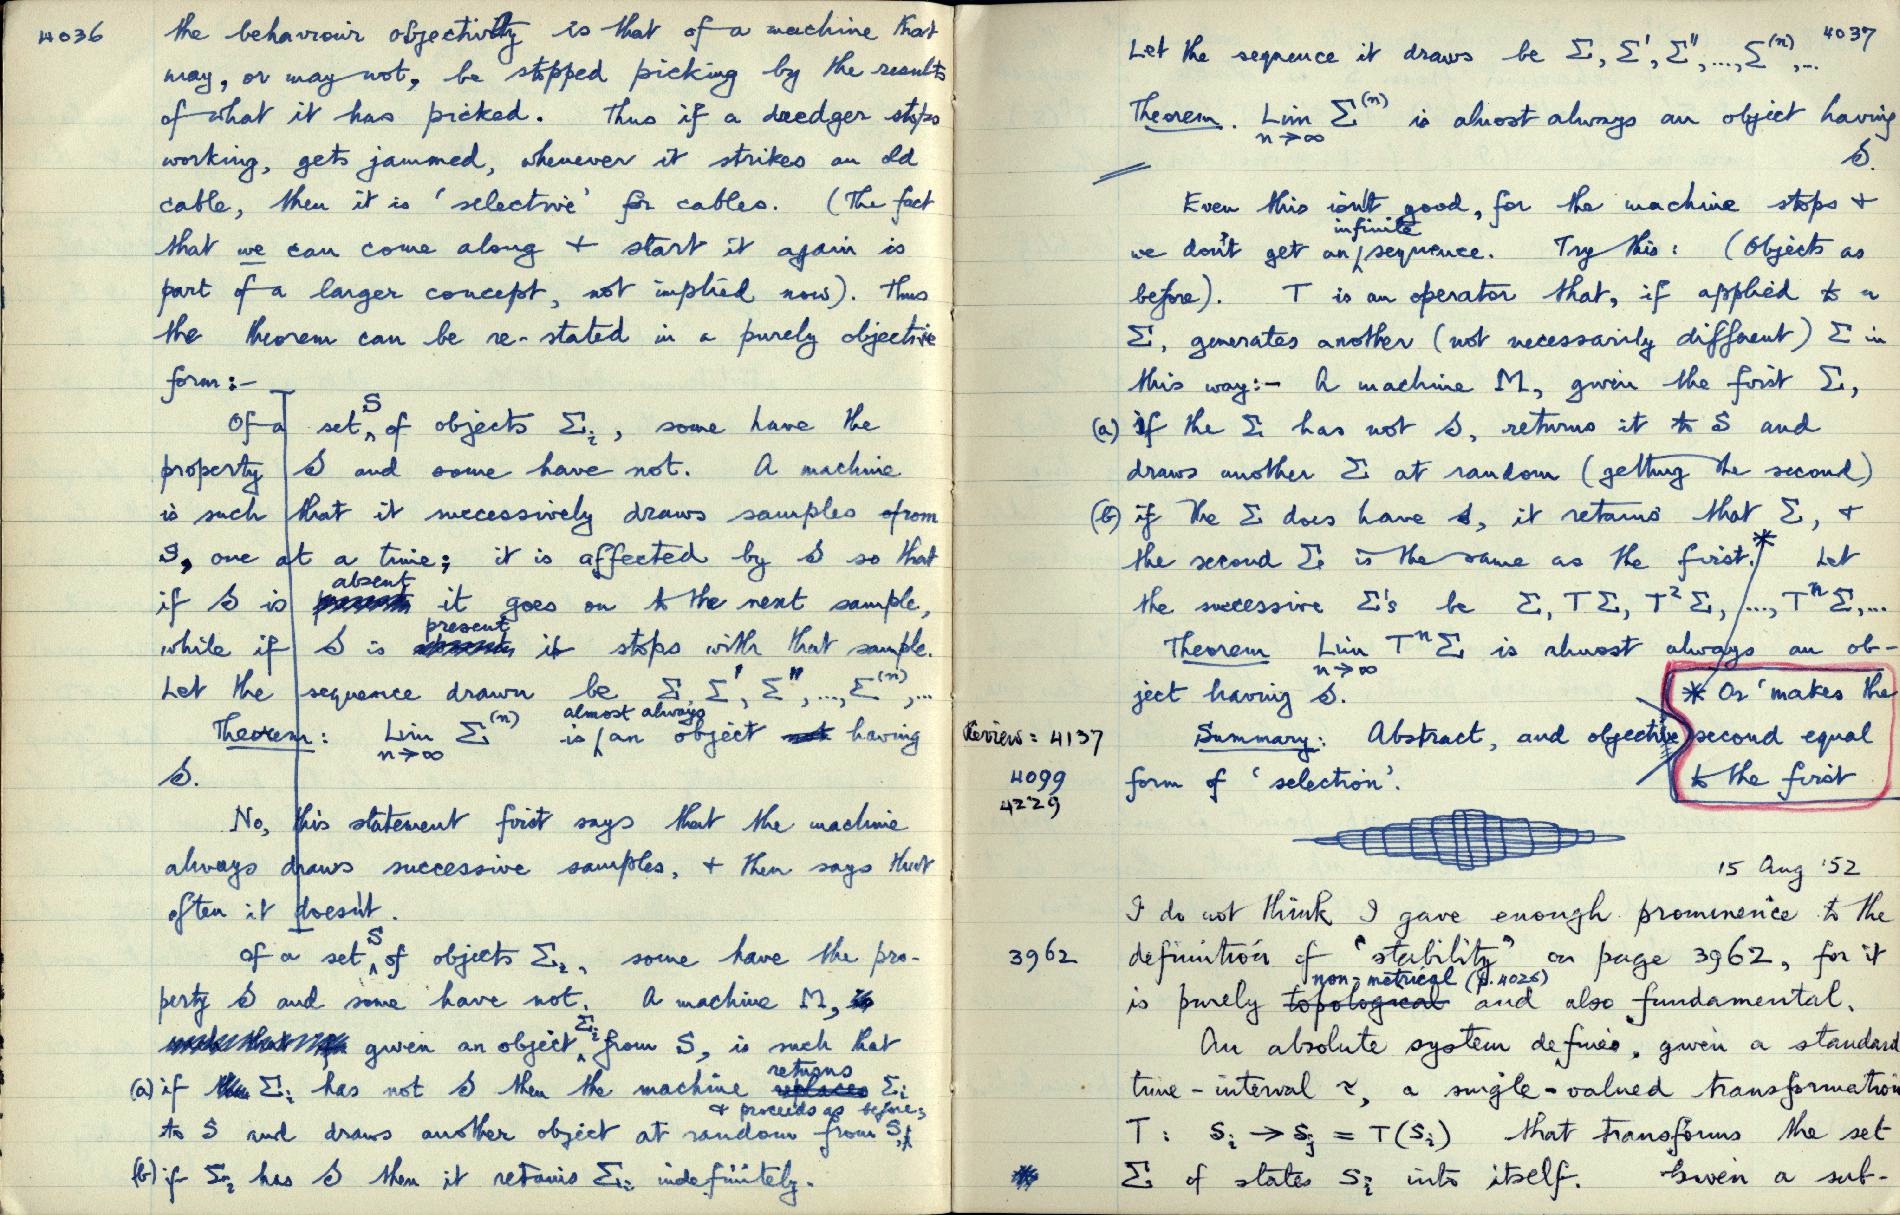 4036
the behaviour objectivity is that of a machine that
may, or may not, be stopped picking by the results
of what it has picked. Thus if a dredger stops
working, gets jammed, whenever it strikes an old
cable, then it is 'selective' for cables. (The fact
that we can come along + start it again is
part of a larger concept, not implied now). Thus
the theorem can be re-stated in a purely objective
form:-
Of a set S of objects Σi, some have the
property S and some have not. A machine
is such that it successively draws samples from
S, one at a time; it is affected by S so that
if S is absent it goes on to the next sample,
while if S is present it stops with that sample.
Let the sequence drawn be Σ, Σ', Σ'', ..., Σ(n), ...
Theorem: Lim n→∞ Σ(n) is almost always an object not having
S.
No, this statement first says that the machine
always draws successive samples, + then says that
often it doesn't.
Of a set S of objects Σi, some have the pro-
perty S and some have not. A machine M, is
given an object Σi from S, is such that
(a) if Σi has not S then the machine replaces returns Σi
to S and draws another object at random from S, + proceeds as before;
(b) if Σi has S then it retains Σi indefinitely.
4037
Let the sequence it draws be Σ, Σ', Σ'', ..., Σ(n), ...
Theorem. Lim n→∞ Σ(n) is almost always an object having
S.
Even this isn't good, for the machine stops +
we don't get an infinite sequence. Try this: (Objects as
before). T is an operator that, if applied to a
Σ, generates another (not necessarily different) Σ in
this way:- A machine M, given the first Σ,
(a) if the Σ has not S, returns it to S and
draws another Σ at random (getting the second)
(b) if the Σ does have S, it retains that Σ, +
the second Σ is the same as the first.* Let
the successive Σ's be Σ, TΣ, T²Σ, ..., TⁿΣ, ...
Theorem Lim n→∞ TⁿΣ is almost always an ob-
ject having S.
* Or 'makes the
second equal
to the first
Review: 4137
4099
4229
Summary: Abstract, and objective
form of 'selection'.
15 Aug '52
I do not think I gave enough prominence to the
3962
definition of "stability" on page 3962, for it
is purely topological non-metrical (p. 4026) and also fundamental.
An absolute system defines, given a standard
time-interval τ, a single-valued transformation
T: Si → Sj = T(Si) that transforms the set
Σ of states Si into itself. Given a sub-